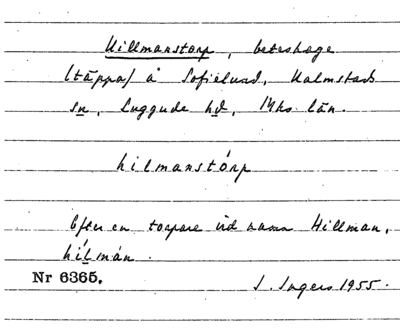 Hillmanstorp, beteshage
(täppa) å Sofielund, Halmstads
sn, Luggude hd, Mhs län.
hilmanstórp
Efter en torpare vid namn Hillman,
hílmán.
Nr 6365.
I. Ingers 1955.